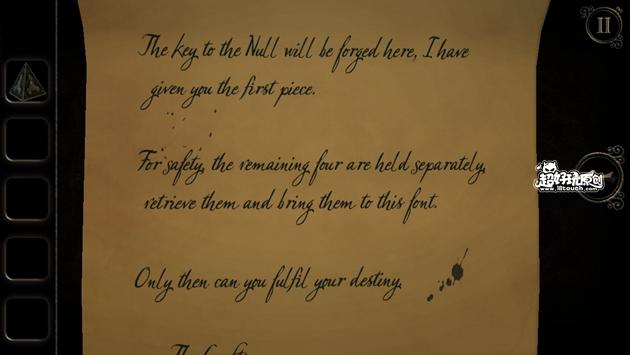 The key to the Null will be forged here, I have
given you the first piece.
For safety, the remaining four are held separately,
retrieve them and bring them to this font.
Only then can you fulfil your destiny.
超好玩原创
www.18touch.com